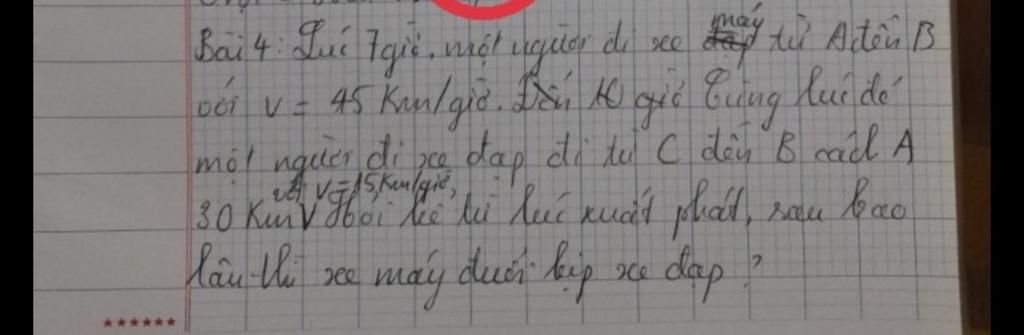 Bài 4: Lúc 7 giờ, một người đi xe máy từ A đến B
với v = 45 Km/giờ. Đến 10 giờ Cùng lúc đó
một người đi xe đạp đi từ C đến B cách A
với v = 15 Km/giờ,
30 Km V Hỏi kể từ lúc xuất phát, sau bao
lâu thì xe máy đuổi kịp xe đạp ?